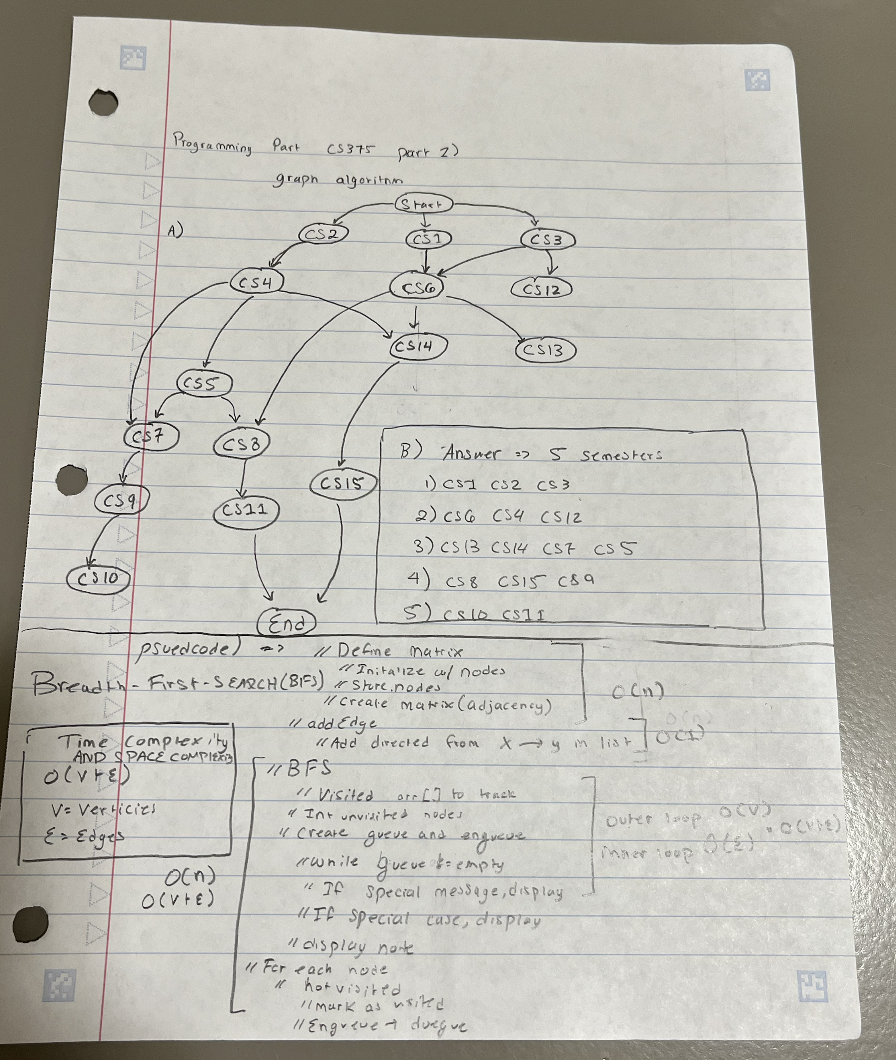 Programming Part CS375 part 2)
graph algoritnm
A)
Start
CS2 CS1 CS3
CS4 CS6 CS12
CS14 CS13
CS5
CS7 CS8
CS9 CS11 CS15
CS10
End
B) Answer => 5 semesters
1) CS1 CS2 CS3
2) CS6 CS4 CS12
3) CS13 CS14 CS7 CS5
4) CS8 CS15 CS9
5) CS10 CS11
psuedcode) => // Define matrix
// Initalize w/ nodes
Breadth-First-SEARCH(BFS) // Store nodes
// Create matrix (adjacency)
O(n)
// addEdge
// Add directed from x → y in list
O(1)
Time Complexity
AND SPACE COMPLEXITY
O(V+E)
V = Verticies
E = Edges
O(n)
O(V+E)
// BFS
// Visited arr[] to track
// Int unvisited nodes
// Create queue and enqueue
// while queue != empty
// If special message, display
outer loop O(V)
inner loop O(E)
O(V+E)
// If special case, display
// display note
// For each node
// not visited
// mark as visited
// Enqueue → dueque